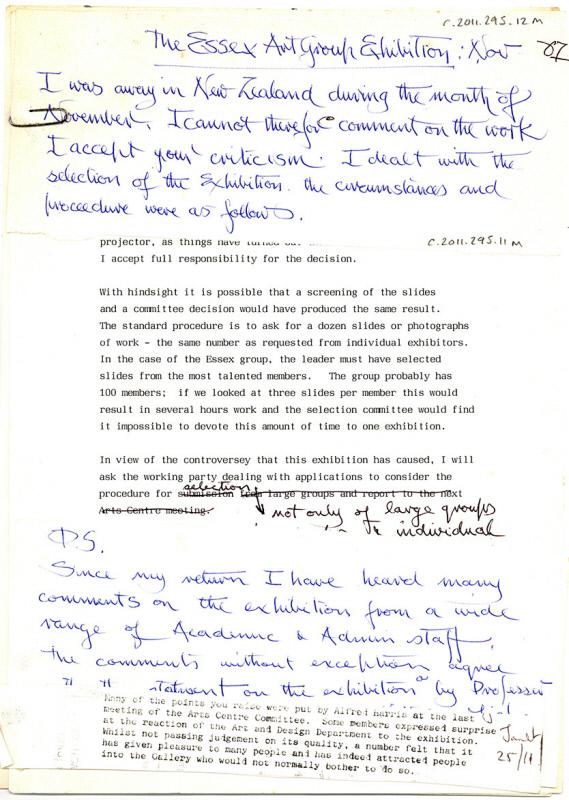 C.2011.295.12 M
The Essex Art Group Exhibition: Nov 87
I was away in New Zealand during the month of
November. I cannot therefore comment on the work
I accept your criticism. I dealt with the
selection of the Exhibition. the circumstances and
proceedure were as follows.
C.2011.295.11 M
projector, as things have turned out.
I accept full responsibility for the decision.
With hindsight it is possible that a screening of the slides
and a committee decision would have produced the same result.
The standard procedure is to ask for a dozen slides or photographs
of work - the same number as requested from individual exhibitors.
In the case of the Essex group, the leader must have selected
slides from the most talented members. The group probably has
100 members; if we looked at three slides per member this would
result in several hours work and the selection committee would find
it impossible to devote this amount of time to one exhibition.
In view of the controversy that this exhibition has caused, I will
ask the working party dealing with applications to consider the
selection
procedure for submission from large groups and report to the next
Arts Centre meeting.
not only of large groups
individual
P.S.
Since my return I have heard many
comments on the exhibition from a wide
range of Academic & Admin staff.
the comments without exception agree
" " statment on the exhibition by Professor
Many of the points you raise were put by Alfred Harris at the last
meeting of the Arts Centre Committee. Some members expressed surprise
at the reaction of the Art and Design Department to the exhibition.
Whilst not passing judgement on its quality, a number felt that it
has given pleasure to many people and has indeed attracted people
into the Gallery who would not normally bother to do so.
Janet
25/11